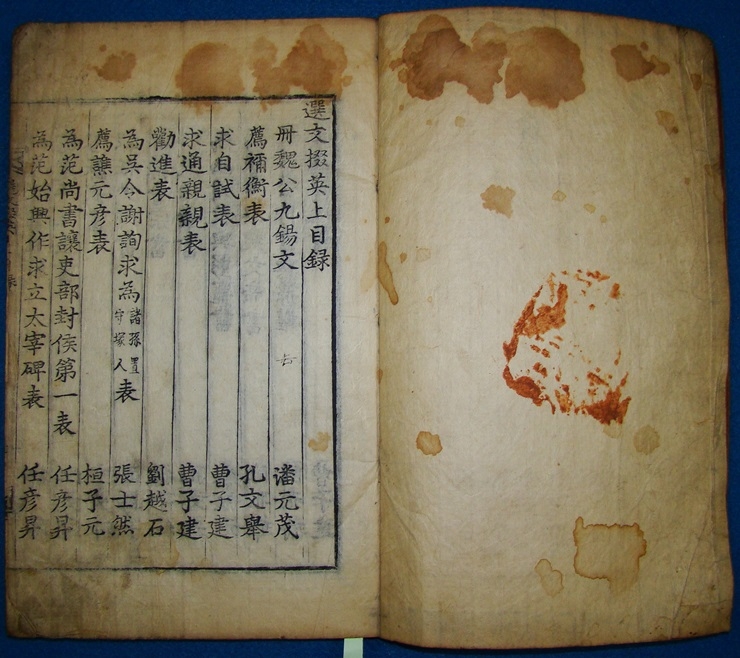 選文掇英上目録
冊魏公九錫文 潘元茂
薦禰衡表 孔文舉
求自試表 曹子建
求通親親表 曹子建
勸進表 劉越石
為吳令謝詢求為諸孫置守塚人表 張士然
薦譙元彦表 桓子元
為范尚書讓吏部封侯第一表 任彦昇
為范始興作求立太宰碑表 任彦昇